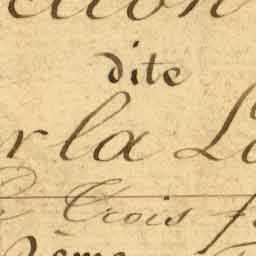 ction
dite
r la L
Trois f
2ème